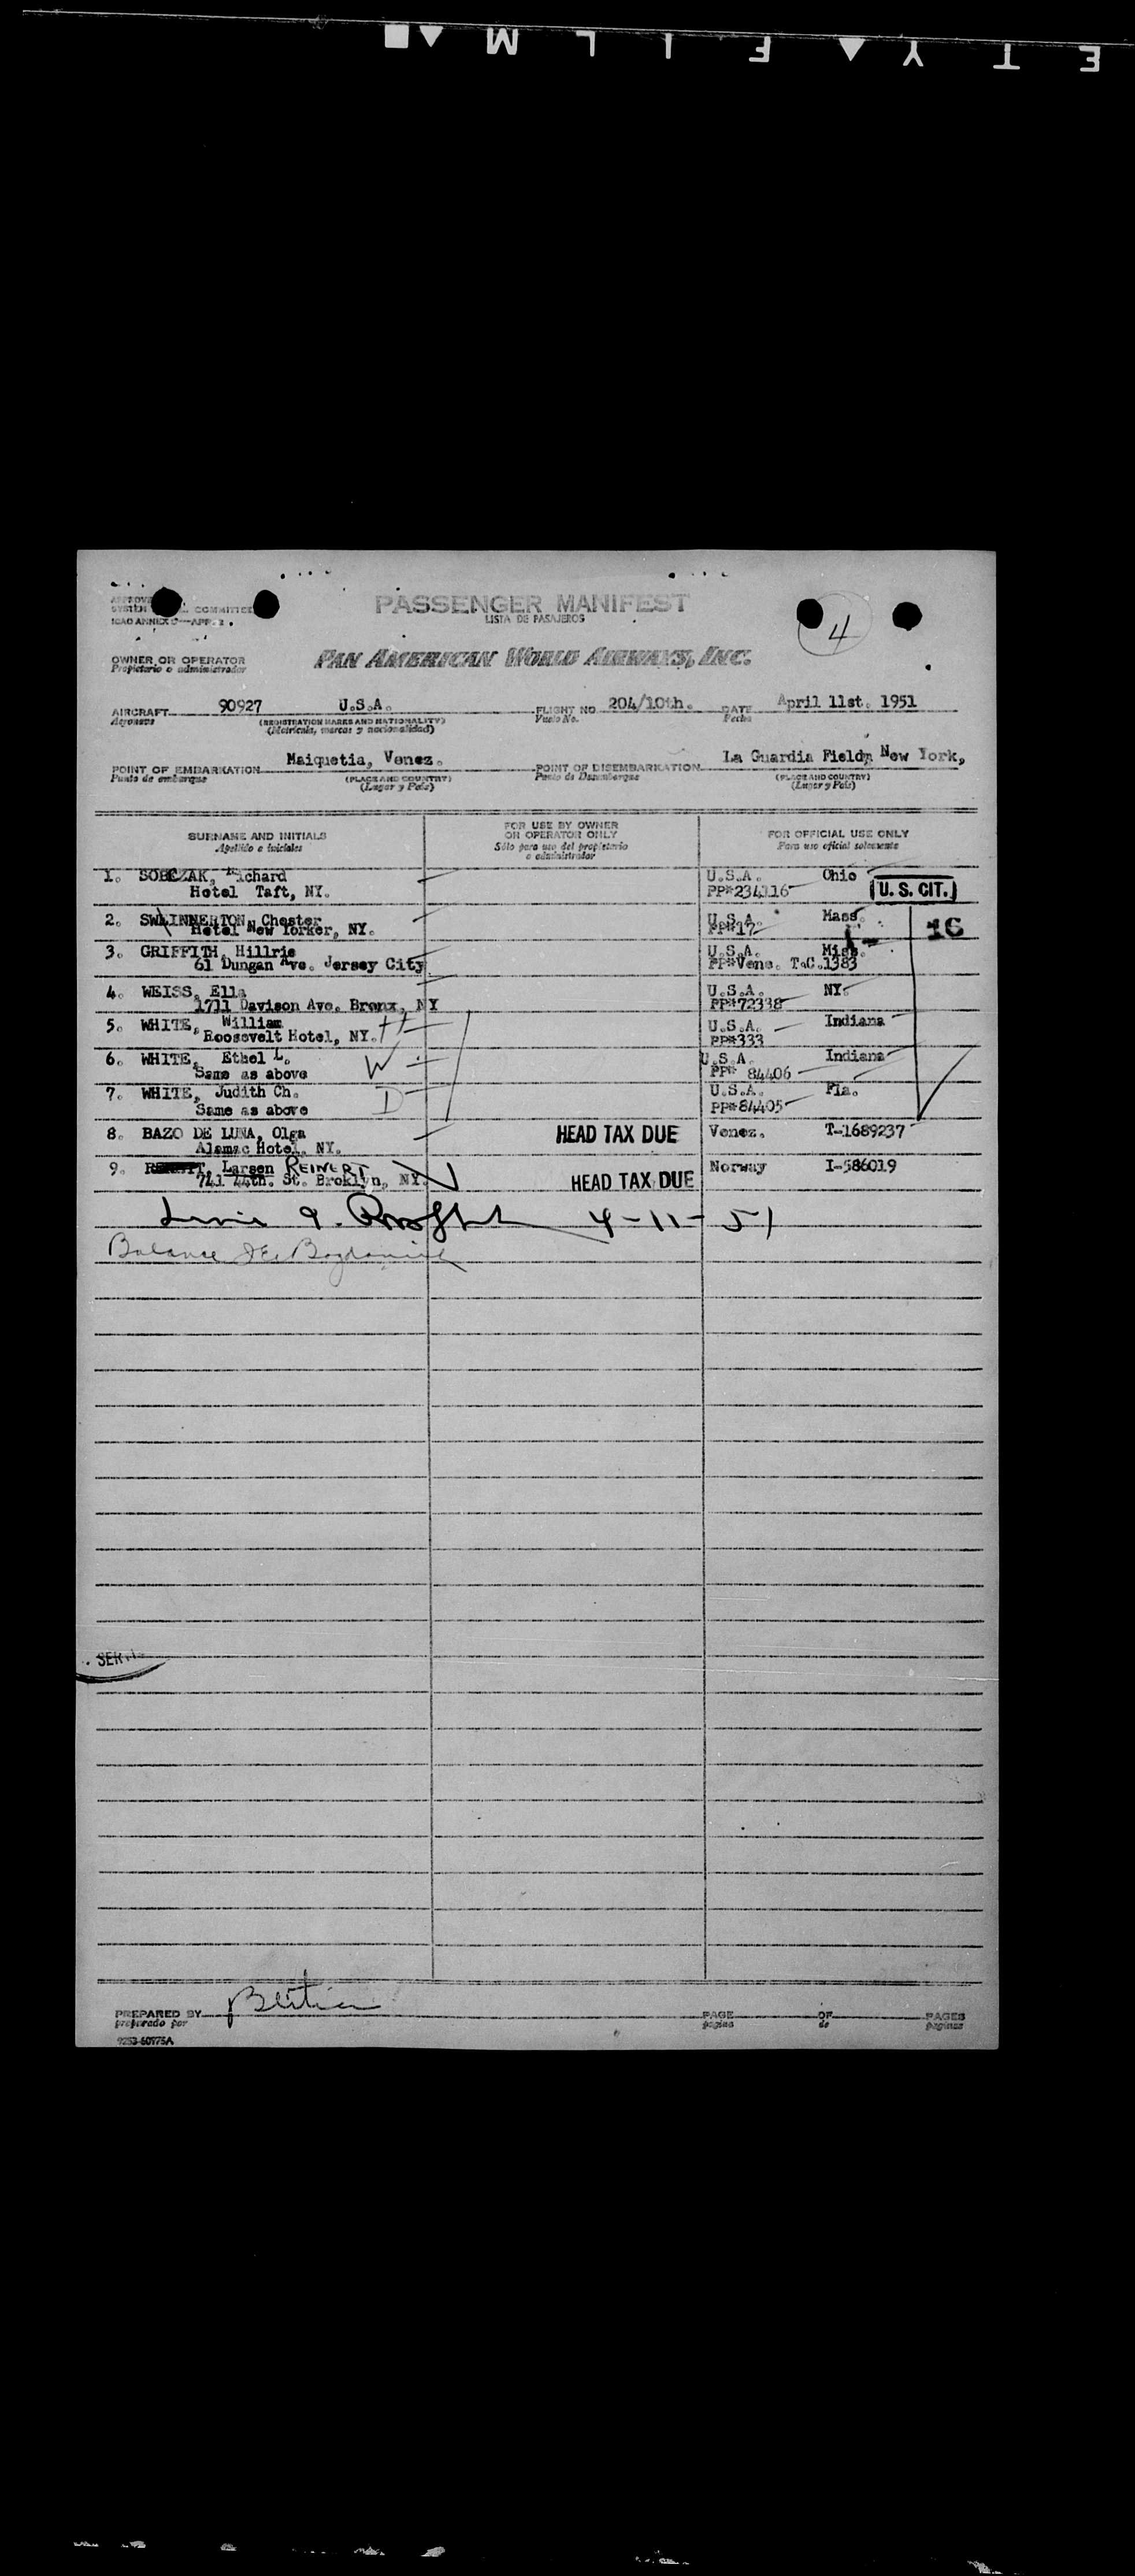 E T Y ▲ F I L M ▲ ■
PASSENGER MANIFEST
LISTA DE PASAJEROS
COMMITTEE
ICAO ANNEX 9—APP. 2
4
OWNER OR OPERATOR
Propietario o administrador
PAN AMERICAN WORLD AIRWAYS, INC.
AIRCRAFT 90927 U.S.A. FLIGHT NO 204/10th. DATE April 11st. 1951
Aeronave (REGISTRATION MARKS AND NATIONALITY) Vuelo No. Fecha
(Matrícula, marcas y nacionalidad)
POINT OF EMBARKATION Maiquetia, Venez. POINT OF DISEMBARKATION La Guardia Field, New York,
Punto de embarque (PLACE AND COUNTRY) Punto de Desembarque (PLACE AND COUNTRY)
(Lugar y País) (Lugar y País)
SURNAME AND INITIALS FOR USE BY OWNER OR OPERATOR ONLY FOR OFFICIAL USE ONLY
Apellido e iniciales Sólo para uso del propietario o administrador Para uso oficial solamente
1. SOBCZAK, Richard U.S.A. Ohio
Hotel Taft, NY. PP#234116 U. S. CIT.
2. SWINNERTON, Chester U.S.A. Mass.
Hotel New Yorker, NY. PP#17 16
3. GRIFFITH, Hillrie U.S.A. Miss.
61 Dungan Ave. Jersey City PP#Vene. T.C.1383
4. WEISS, Ella U.S.A. NY.
1711 Davison Ave. Bronx, NY PP#72338
5. WHITE, William U.S.A. Indiana
Roosevelt Hotel, NY. H PP#333
6. WHITE, Ethel L. U.S.A. Indiana
Same as above W PP# 84406
7. WHITE, Judith Ch. U.S.A. Fla.
Same as above D PP#84405
8. BAZO DE LUNA, Olga HEAD TAX DUE Venez. T-1689237
Alamac Hotel, NY.
9. Larsen REINERT HEAD TAX DUE Norway I-586019
741 44th. St. Broklyn, NY.
4-11-51
Balance
SERV
PREPARED BY PAGE OF PAGES
preparado por página de páginas
9253-60775A